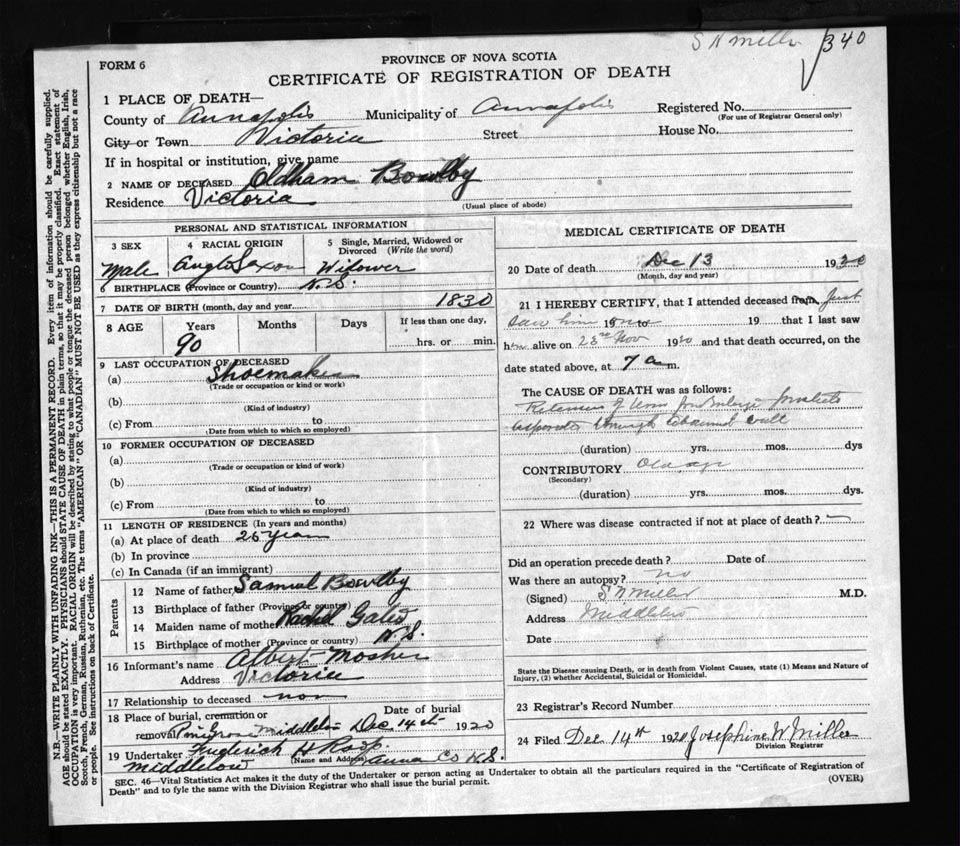 S N Miller 340
FORM 6
PROVINCE OF NOVA SCOTIA
CERTIFICATE OF REGISTRATION OF DEATH
1 PLACE OF DEATH—
County of Annapolis Municipality of Annapolis Registered No.
(For use of Registrar General only)
City or Town Victoria Street House No.
If in hospital or institution, give name
2 NAME OF DECEASED Oldham Bowlby
Residence Victoria
(Usual place of abode)
PERSONAL AND STATISTICAL INFORMATION
3 SEX 4 RACIAL ORIGIN 5 Single, Married, Widowed or Divorced (Write the word)
Male Anglo Saxon Widower
6 BIRTHPLACE (Province or Country) N.S.
7 DATE OF BIRTH (month, day and year) 1830
8 AGE Years Months Days If less than one day,
90 hrs. or min.
9 LAST OCCUPATION OF DECEASED
(a) Shoemaker
(Trade or occupation or kind or work)
(b)
(Kind of industry)
(c) From to
(Date from which to which so employed)
10 FORMER OCCUPATION OF DECEASED
(a)
(Trade or occupation or kind of work)
(b)
(Kind of industry)
(c) From to
(Date from which to which so employed)
11 LENGTH OF RESIDENCE (In years and months)
(a) At place of death 25 years
(b) In province
(c) In Canada (if an immigrant)
Parents
12 Name of father Samuel Bowlby
13 Birthplace of father (Province or country)
14 Maiden name of mother Rachel Gates
15 Birthplace of mother (Province or country) N.S.
16 Informant's name Albert Mosher
Address Victoria
17 Relationship to deceased non
18 Place of burial, cremation or removal Date of burial
Pine Grove Middleton Dec 14th 1920
19 Undertaker Frederick H
(Name and Address)
Middleton Anna Co N.S.
MEDICAL CERTIFICATE OF DEATH
20 Date of death Dec 13 1920
(Month, day and year)
21 I HEREBY CERTIFY, that I attended deceased from Just
saw him 19 to 19 that I last saw
him alive on 23rd Nov 1920 and that death occurred, on the
date stated above, at 7 a m.
The CAUSE OF DEATH was as follows:
Retension of Urine from Enlarged prostate
through abdominal wall
(duration) yrs. mos. dys
CONTRIBUTORY Old age
(Secondary)
(duration) yrs. mos. dys.
22 Where was disease contracted if not at place of death?
Did an operation precede death? Date of
Was there an autopsy? no
(Signed) S N Miller M.D.
Address Middleton
Date
State the Disease causing Death, or in death from Violent Causes, state (1) Means and Nature of
Injury, (2) whether Accidental, Suicidal or Homicidal.
23 Registrar's Record Number
24 Filed Dec 14th 1920 Josephine W Miller
Division Registrar
SEC. 46—Vital Statistics Act makes it the duty of the Undertaker or person acting as Undertaker to obtain all the particulars required in the "Certificate of Registration of
Death" and to fyle the same with the Division Registrar who shall issue the burial permit. (OVER)
N.B.—WRITE PLAINLY WITH UNFADING INK—THIS IS A PERMANENT RECORD. Every item of information should be carefully supplied.
AGE should be stated EXACTLY. PHYSICIANS should STATE CAUSE OF DEATH in plain terms, so that it may be properly classified. Exact statement of
OCCUPATION is very important. RACIAL ORIGIN will be described by stating to what people or tongue the deceased person belonged whether English, Irish,
Scotch, French, German, Russian, Ruthenian, etc. The terms "AMERICAN" OR "CANADIAN" MUST NOT BE USED as they express citizenship but not a race
or people. See instructions on back of Certificate.